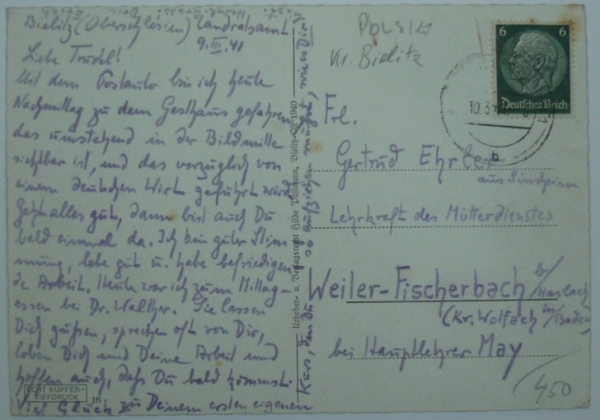 Bielitz (Oberschlesien) Landratsamt
9. III. 41
Liebe Trudel!
Mit dem Postauto bin ich heute
Nachmittag zu dem Gasthaus gefahren,
das umstehend in der Bildmitte
sichtbar ist, und das vorzüglich von
einem deutschen Wirt geführt wird.
Geht alles gut, dann bist auch Du
bald einmal da. Ich bin guter Stim-
mung, lebe gut u. habe befriedigen-
de Arbeit. Heute war ich zum Mittag-
essen bei Dr. Walther. Sie lassen
Dich grüßen, sprechen oft von Dir,
loben Dich und Deine Arbeit und
hoffen auch, daß Du bald kommst.
Viel Glück zu Deinem ersten eigenen
Kurs, den Du so aufziehen
Urheber- u. Verlagsrecht Hilde
1940
ECHT KUPFER-
TIEFDRUCK
16
POLS
Kr. Bielitz
6 6
Deutsches Reich
10.3
b
Frl.
Gertrud Ehrler
Lehrkraft des Mütterdienstes
Weiler-Fischerbach b/ Haslach
(Kr. Wolfach in/ Baden)
bei Hauptlehrer May
450